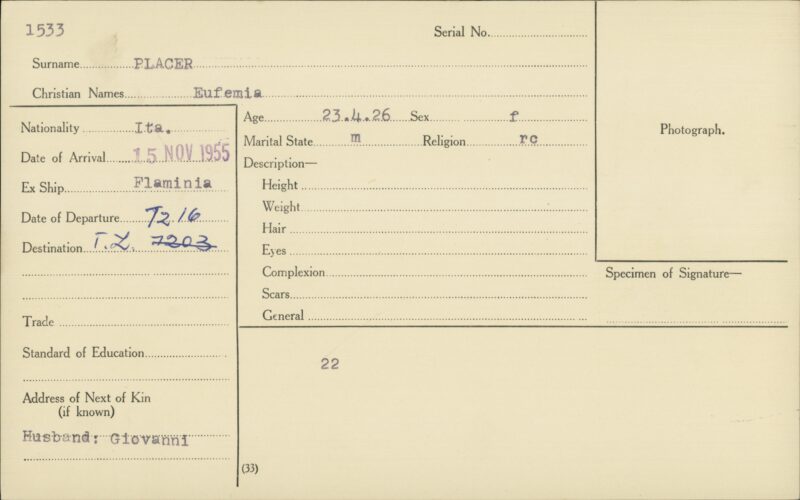 1533
Serial No.
Surname PLACER
Christian Names Eufemia
Nationality Ita.
Date of Arrival 15 NOV 1955
Ex Ship Flaminia
Date of Departure 7216
Destination T.L. 7203
Trade
Standard of Education
Address of Next of Kin
(if known)
Husband: Giovanni
Age 23.4.26 Sex f
Marital State m Religion rc
Description—
Height
Weight
Hair
Eyes
Complexion
Scars
General
22
(33)
Photograph.
Specimen of Signature—